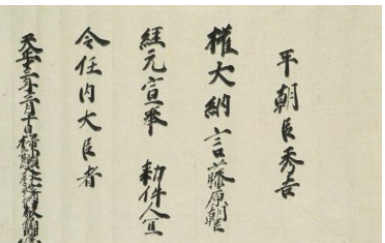 平朝臣秀吉
權大納言藤原朝臣
經元宣奉 勅件人宜
令任内大臣者
天正十三年三月十日